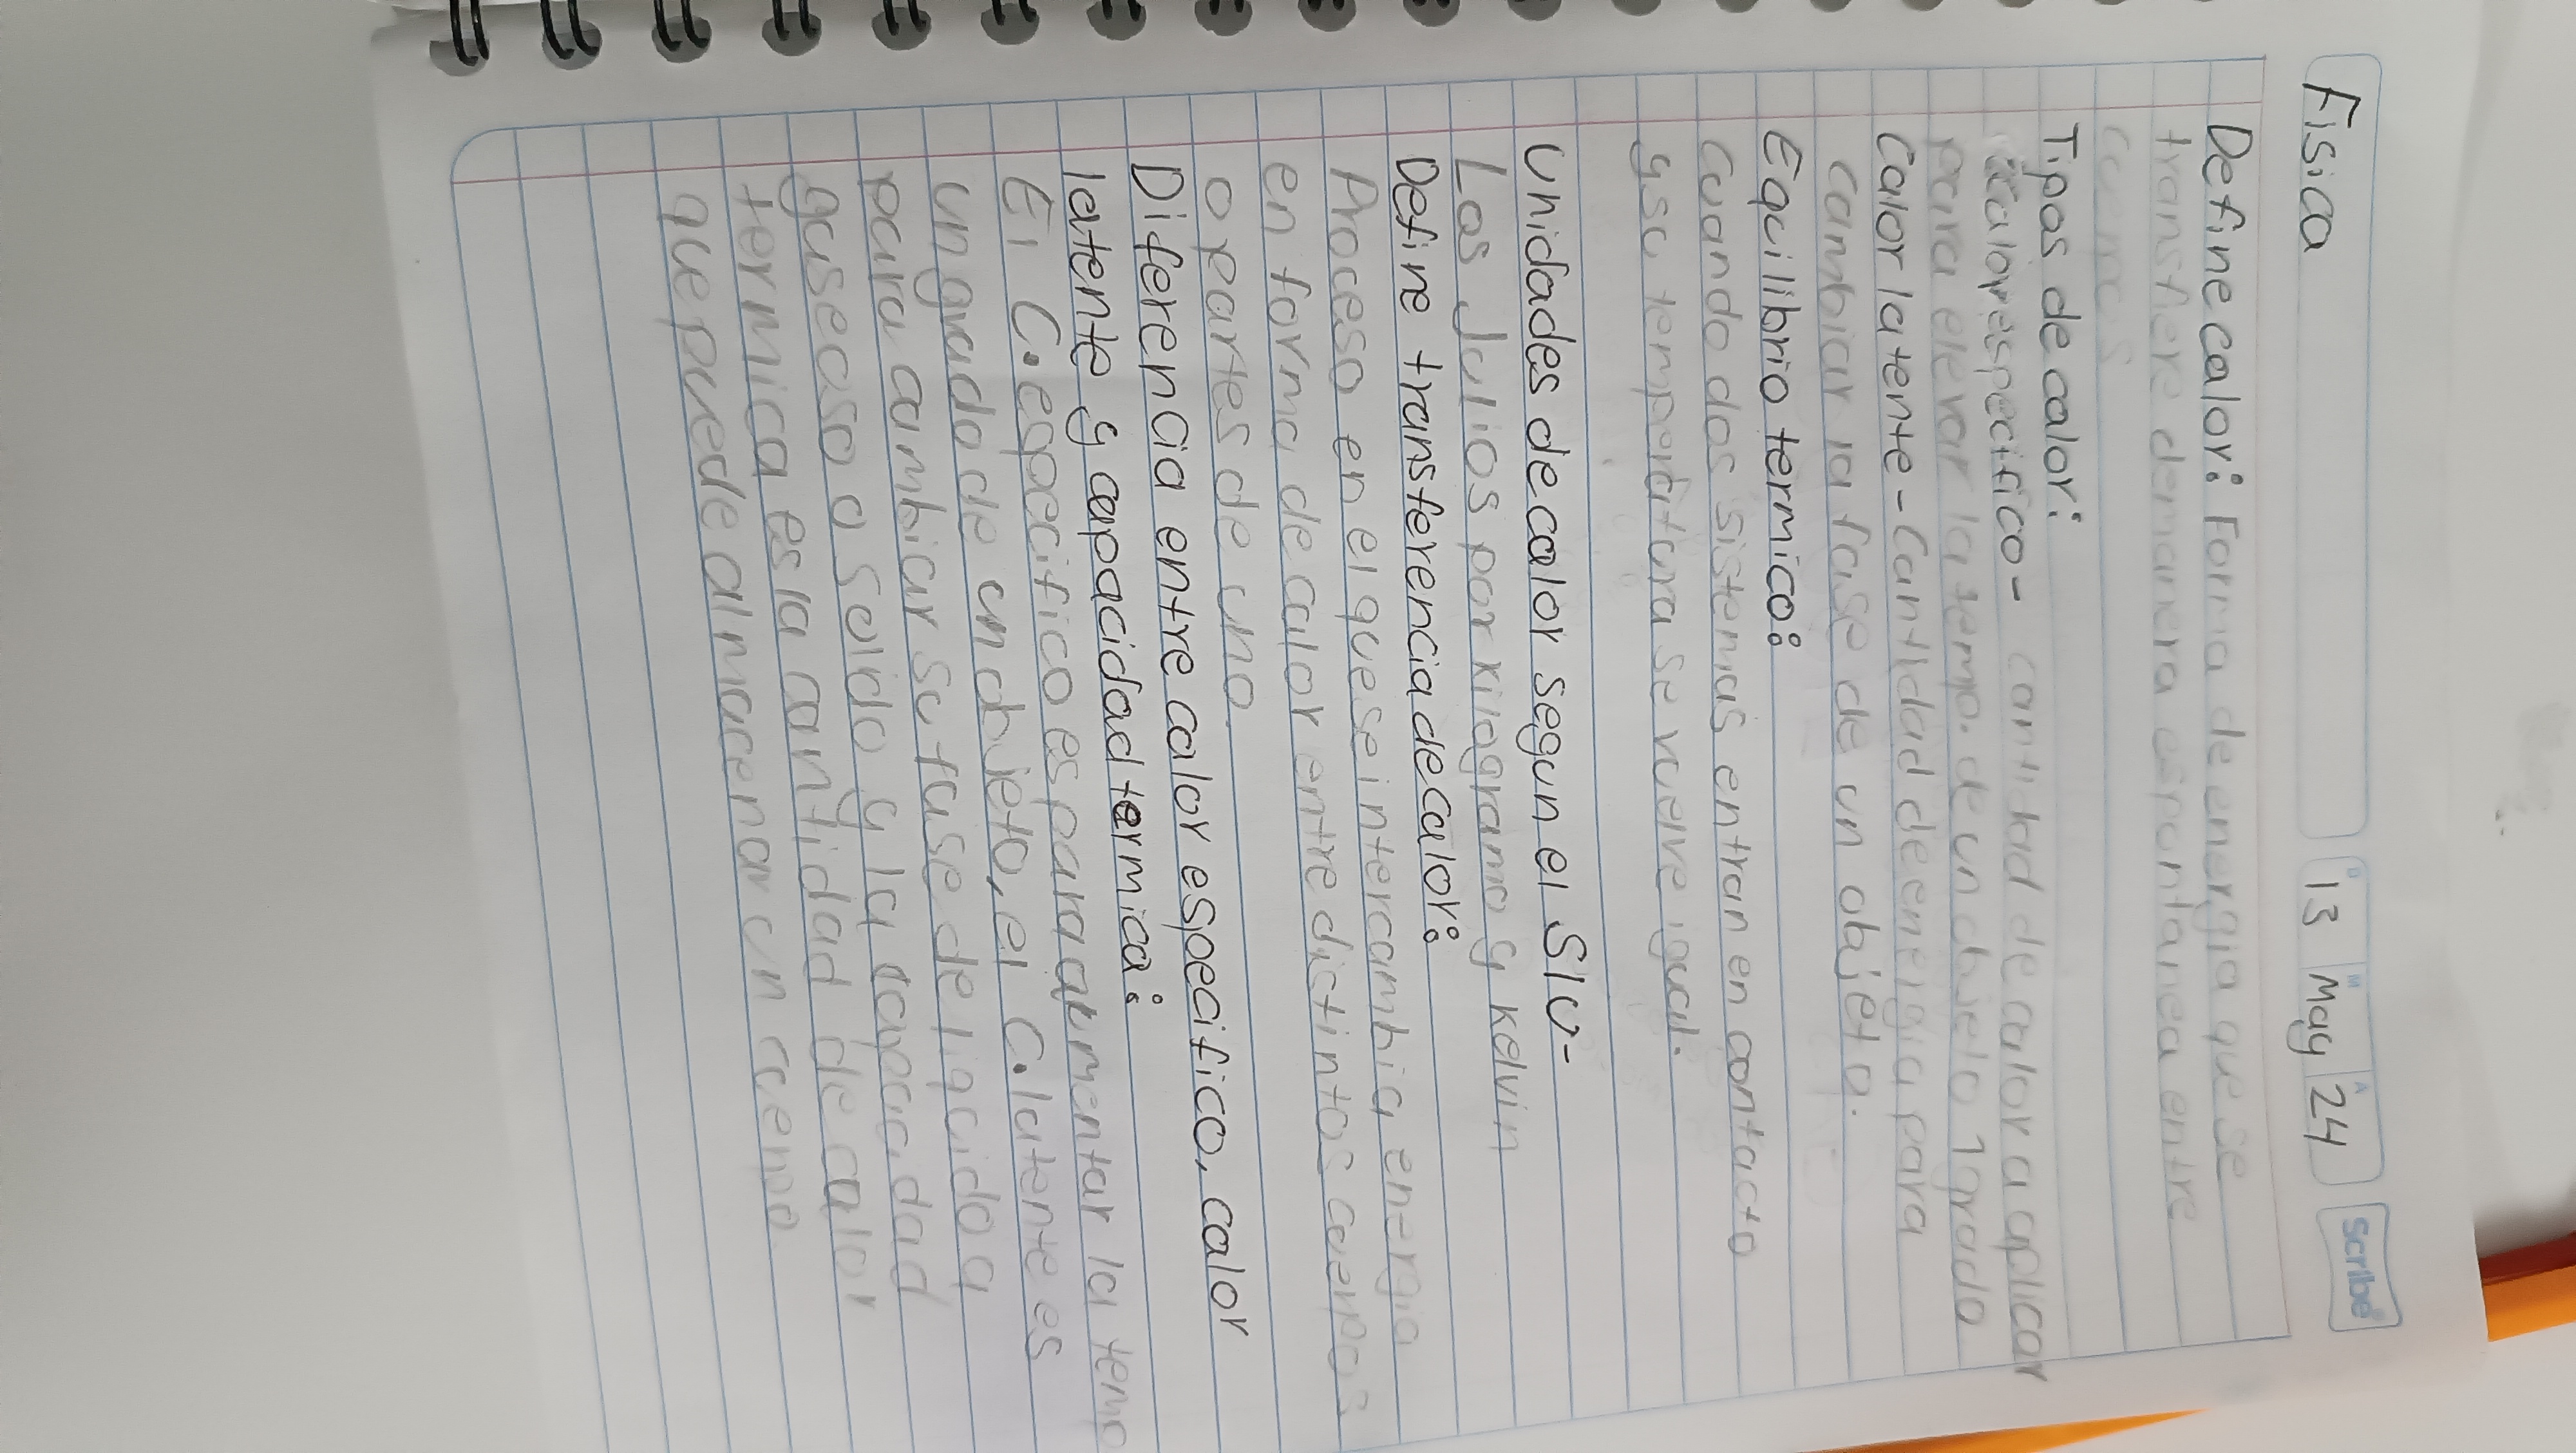 Fisica
D M A
13 May 24
scribe
Define calor: Forma de energia que se
transfiere de manera espontanea entre
Tipos de calor:
Calor especifico- cantidad de calor a aplicar
para elevar la temp. de un objeto 1 grado
Calor latente- Cantidad de energia para
cambiar la fase de un objeto.
Equilibrio termico:
Cuando dos sistemas entran en contacto
y su temperatura se vuelve igual.
Unidades de calor segun el SIU-
Los Julios por kilogramo y kelvin
Define transferencia de calor:
Proceso en el que se intercambia energia
en forma de calor entre dictintos cuerpos
o partes de uno
Diferencia entre calor especifico, calor
latente y capacidad termica:
El C. especifico es para aumentar la temp
un grado de un objeto, el C. latente es
para cambiar su fase de liquido a
gaseoso o solido y la capacidad
termica es la cantidad de calor
que puede almacenar un cuerpo